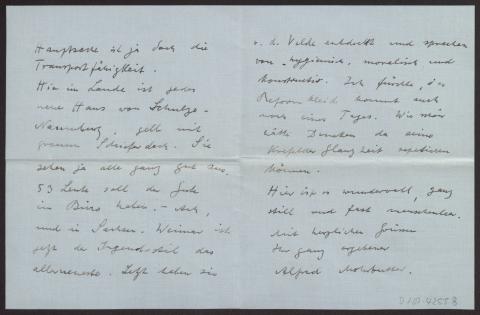 Hauptsache ist ja doch die
Transportfähigkeit.
Hier im Lande ist jedes
neue Haus von Schultze-
Naumburg, gelb mit
grauem Schieferdach. Sie
sehen ja alle ganz gut aus.
53 Leute soll der Gute
im Büro haben. – Ach,
und in Sachen Weimar ist
jetzt der Jugendstil das
allerneueste. Jetzt haben sie
v. d. Velde entdeckt und sprechen
von – hygienisch, moralisch und
konstruktiv. Ich fürchte, das
Reformkleid kommt auch
noch eines Tages. Wie
Deneken da seine
Krefelder Glanzzeit repetieren
können.
Hier ist es wundervoll, ganz
still und fast menschenleer.
Mit herzlichen Grüssen
Ihr ganz ergebener
Alfred Mohrbutter.